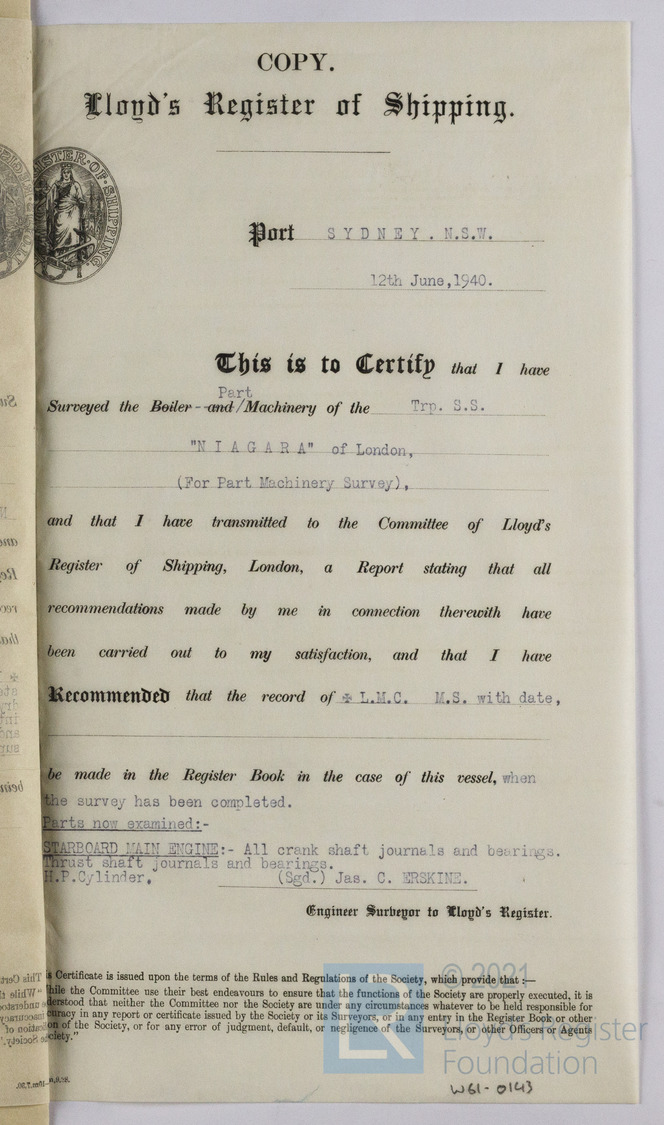 COPY.
Lloyd's Register of Shipping.
Port SYDNEY. N.S.W.
12th June, 1940.
This is to Certify that I have
Part
Surveyed the Boiler and/Machinery of the Trp. S.S.
"NIAGARA" of London,
(For Part Machinery Survey),
and that I have transmitted to the Committee of Lloyd's
Register of Shipping, London, a Report stating that all
recommendations made by me in connection therewith have
been carried out to my satisfaction, and that I have
Recommended that the record of ✠ L.M.C. M.S. with date,
be made in the Register Book in the case of this vessel, when
the survey has been completed.
Parts now examined:-
STARBOARD MAIN ENGINE:- All crank shaft journals and bearings.
Thrust shaft journals and bearings.
H.P.Cylinder. (Sgd.) Jas. C. ERSKINE.
Engineer Surveyor to Lloyd's Register.
Certificate is issued upon the terms of the Rules and Regulations of the Society, which provide that :—
While the Committee use their best endeavours to ensure that the functions of the Society are properly executed, it is
understood that neither the Committee nor the Society are under any circumstances whatever to be held responsible for
inaccuracy in any report or certificate issued by the Society or its Surveyors, or in any entry in the Register Book or other
of the Society, or for any error of judgment, default, or negligence of the Surveyors, or other Officers or Agents
Society."
© 2021
Lloyd's Register
Foundation
W61-0143